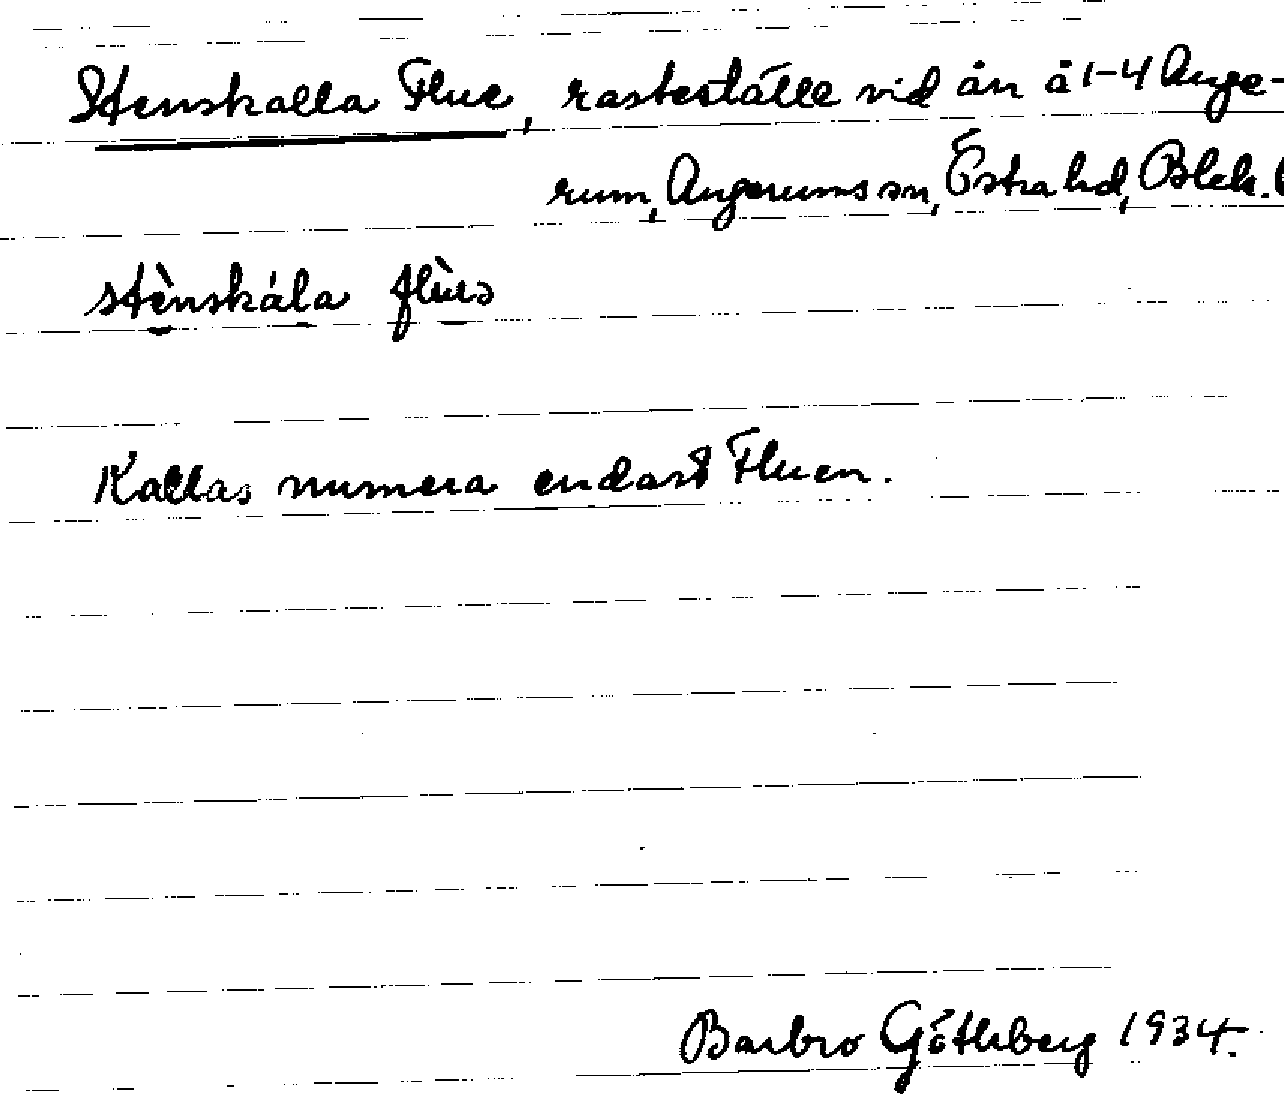 Stenskalla Flue, rasteställe vid ån å 1-4 Ange-
rum, Angerums sn, Östra hd, Blek.
stènskála flùə
Kallas numera endast Fluen.
Barbro Götheberg 1934.